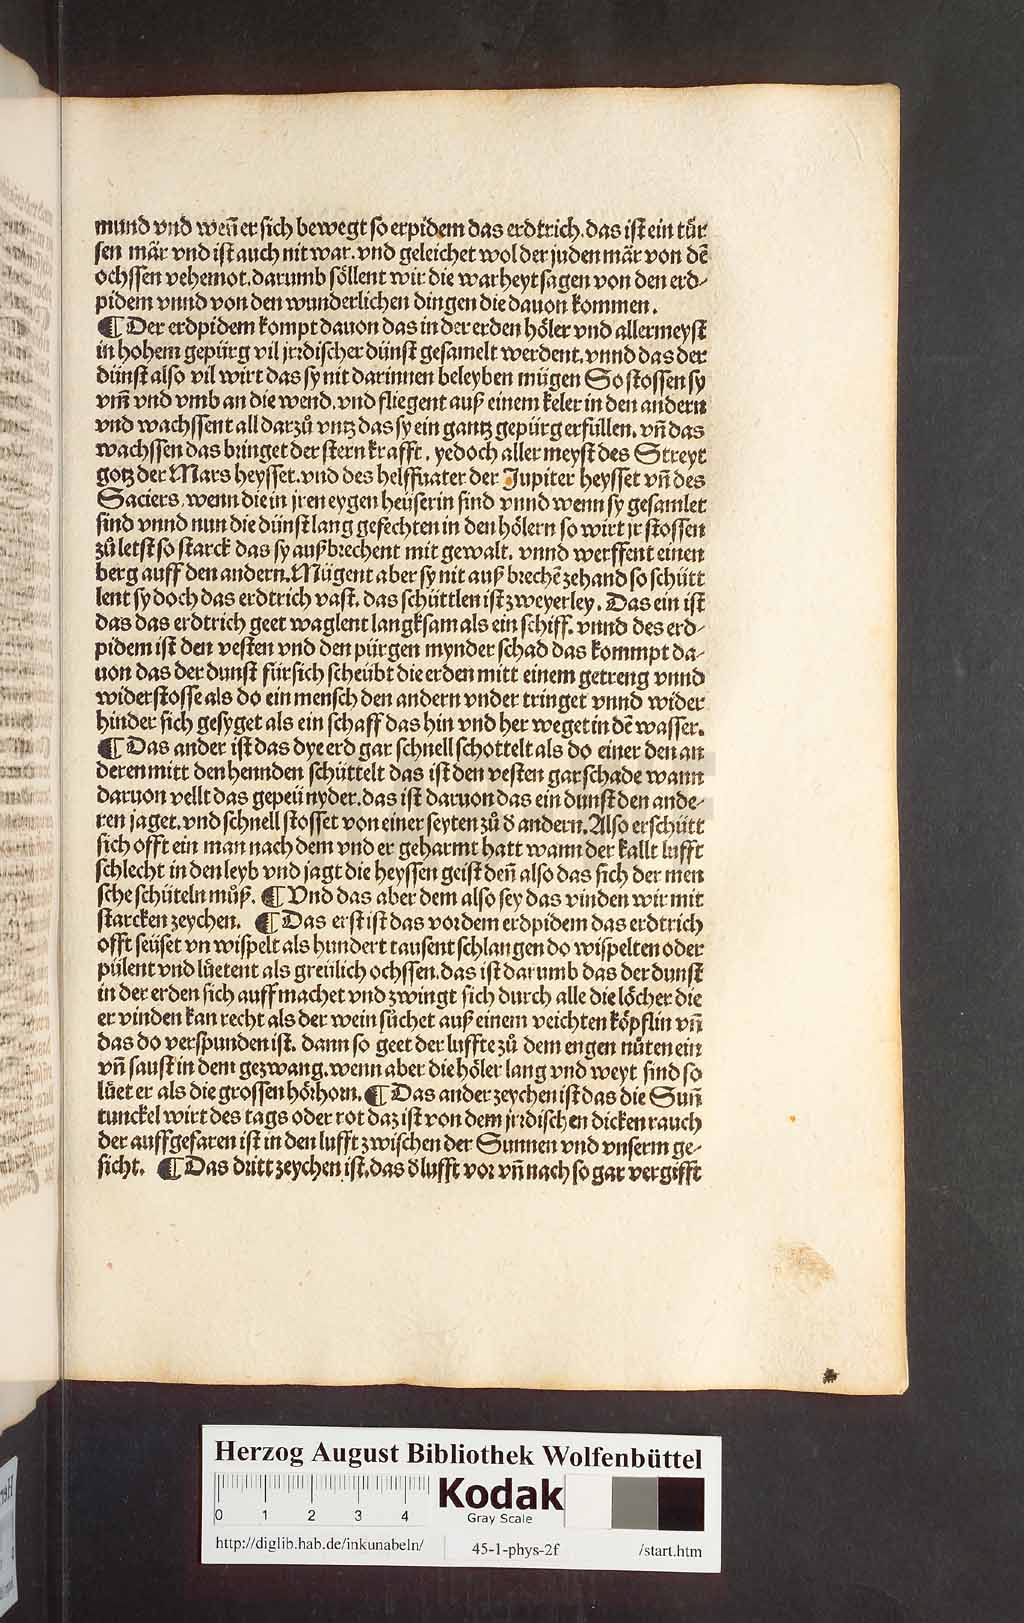 mund vnd weñ er sich bewegt so erpidem das erdtrich. das ist ein tür
sen mär vnd ist auch nit war. vnd geleichet wol der juden mär von dē
ochssen vehemot. darumb söllent wir die warheyt sagen von den erd⸗
pidem vnnd von den wunderlichen dingen die dauon kommen.
¶ Der erdpidem kompt dauon das in der erden höler vnd allermeyst
in hohem gepürg vil jrꝛdischer dünst gesamelt werdent. vnnd das der
dünst also vil wirt das sy nit darinnen beleyben mügen So stossen sy
vm̄ vnd vmb an die wend. vnd fliegent auß einem keler in den andern
vnd wachssent all darzů vntz das sy ein gantz gepürg erfüllen. vñ das
wachssen das bringet der stern krafft. yedoch aller meyst des Streyt
gotz der Mars heysset. vnd des helffuater der Jupiter heysset vñ des
Saciers. wenn die in jren eygen heüserin sind vnnd wenn sy gesamlet
sind vnnd nun die dünst lang gefechten in den hölern so wirt jr stossen
zů letst so starck das sy außbrechent mit gewalt. vnnd werffent einen
berg auff den andern. Mügent aber sy nit auß brechē zehand so schütt
lent sy doch das erdtrich vast. das schüttlen ist zweyerley. Das ein ist
das das erdtrich geet waglent langksam als ein schiff. vnnd des erd⸗
pidem ist den vesten vnd den pürgen mynder schad das kommpt da⸗
uon das der dunst für sich scheübt die erden mitt einem getreng vnnd
widerstosse als do ein mensch den andern vnder tringet vnnd wider
hinder sich gesyget als ein schaff das hin vnd her weget in dē wasser.
¶ Das ander ist das dye erd gar schnell schottelt als do einer den an
deren mitt den hennden schüttelt das ist den vesten gar schade wann
daruon vellt das gepeü nyder. das ist daruon das ein dunst den ande⸗
ren jaget. vnd schnell stosset von einer seyten zů ď andern. Also erschütt
sich offt ein man nach dem vnd er geharmt hatt wann der kallt lufft
schlecht in den leyb vnd jagt die heyssen geist deñ also das sich der men
sche schüteln můß. ¶ Vnd das aber dem also sey das vinden wir mit
starcken zeychen. ¶ Das erst ist das vor dem erdpidem das erdtrich
offt seüset vn wispelt als hundert tausent schlangen do wispelten oder
pülent vnd lüetent als greülich ochssen. das ist darumb das der dunst
in der erden sich auff machet vnd zwingt sich durch alle die löcher die
er vinden kan recht als der wein sůchet auß einem veichten köpflin vñ
das do verspunden ist. dann so geet der luffte zů dem engen nůten ein
vñ saust in dem gezwang. wenn aber die höler lang vnd weyt sind so
lüet er als die grossen hörhorn. ¶ Das ander zeychen ist das die Suñ
tunckel wirt des tags oder rot daz ist von dem jrꝛdischen dicken rauch
der auffgefaren ist in den lufft zwischen der Sunnen vnd vnserm ge⸗
sicht. ¶ Das dritt zeychen ist. das ď lufft vor vñ nach so gar vergifft
Herzog August Bibliothek Wolfenbüttel
0 1 2 3 4
Kodak
Gray Scale
http://diglib.hab.de/inkunabeln/ 45-1-phys-2f /start.htm